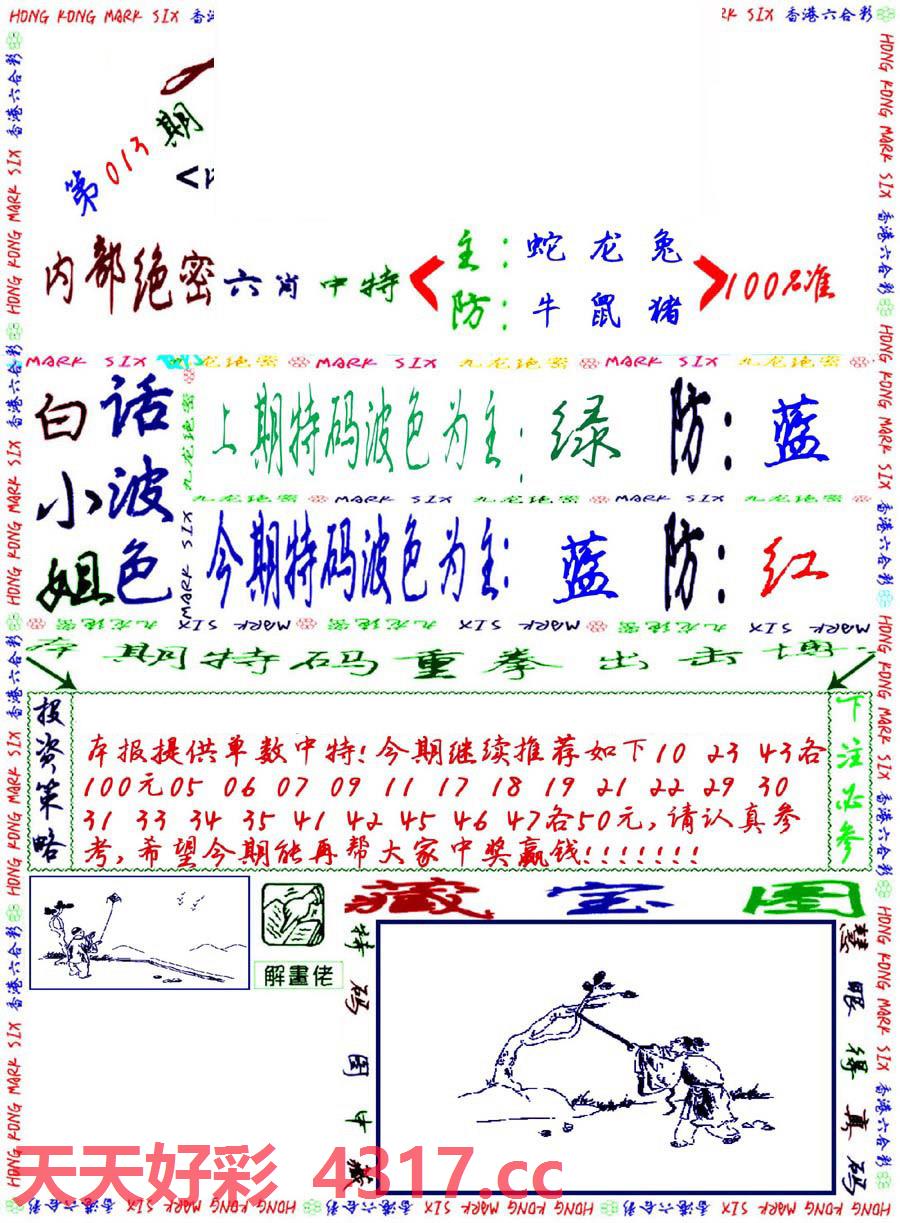 HONG KONG MARK SIX 香港六合彩
第013期
内部绝密六肖中特
主：蛇龙兔
防：牛鼠猪
100%准
MARK SIX 九龙绝密 MARK SIX 九龙绝密 MARK SIX 九龙绝密
白小姐
话波色
上期特码波色为主：绿 防：蓝
九龙绝密 MARK SIX 九龙绝密 MARK SIX 九龙绝密
今期特码波色为主：蓝 防：红
期特码重拳出击
投资策略
本报提供单数中特!今期继续推荐如下10 23 43各
100元05 06 07 09 11 17 18 19 21 22 29 30
31 33 34 35 41 42 45 46 47各50元,请认真参
考,希望今期能再帮大家中奖赢钱!!!!!!!
下注必参
解畫佬
藏宝图
特码图中藏
慧眼得真码
天天好彩 4317.cc